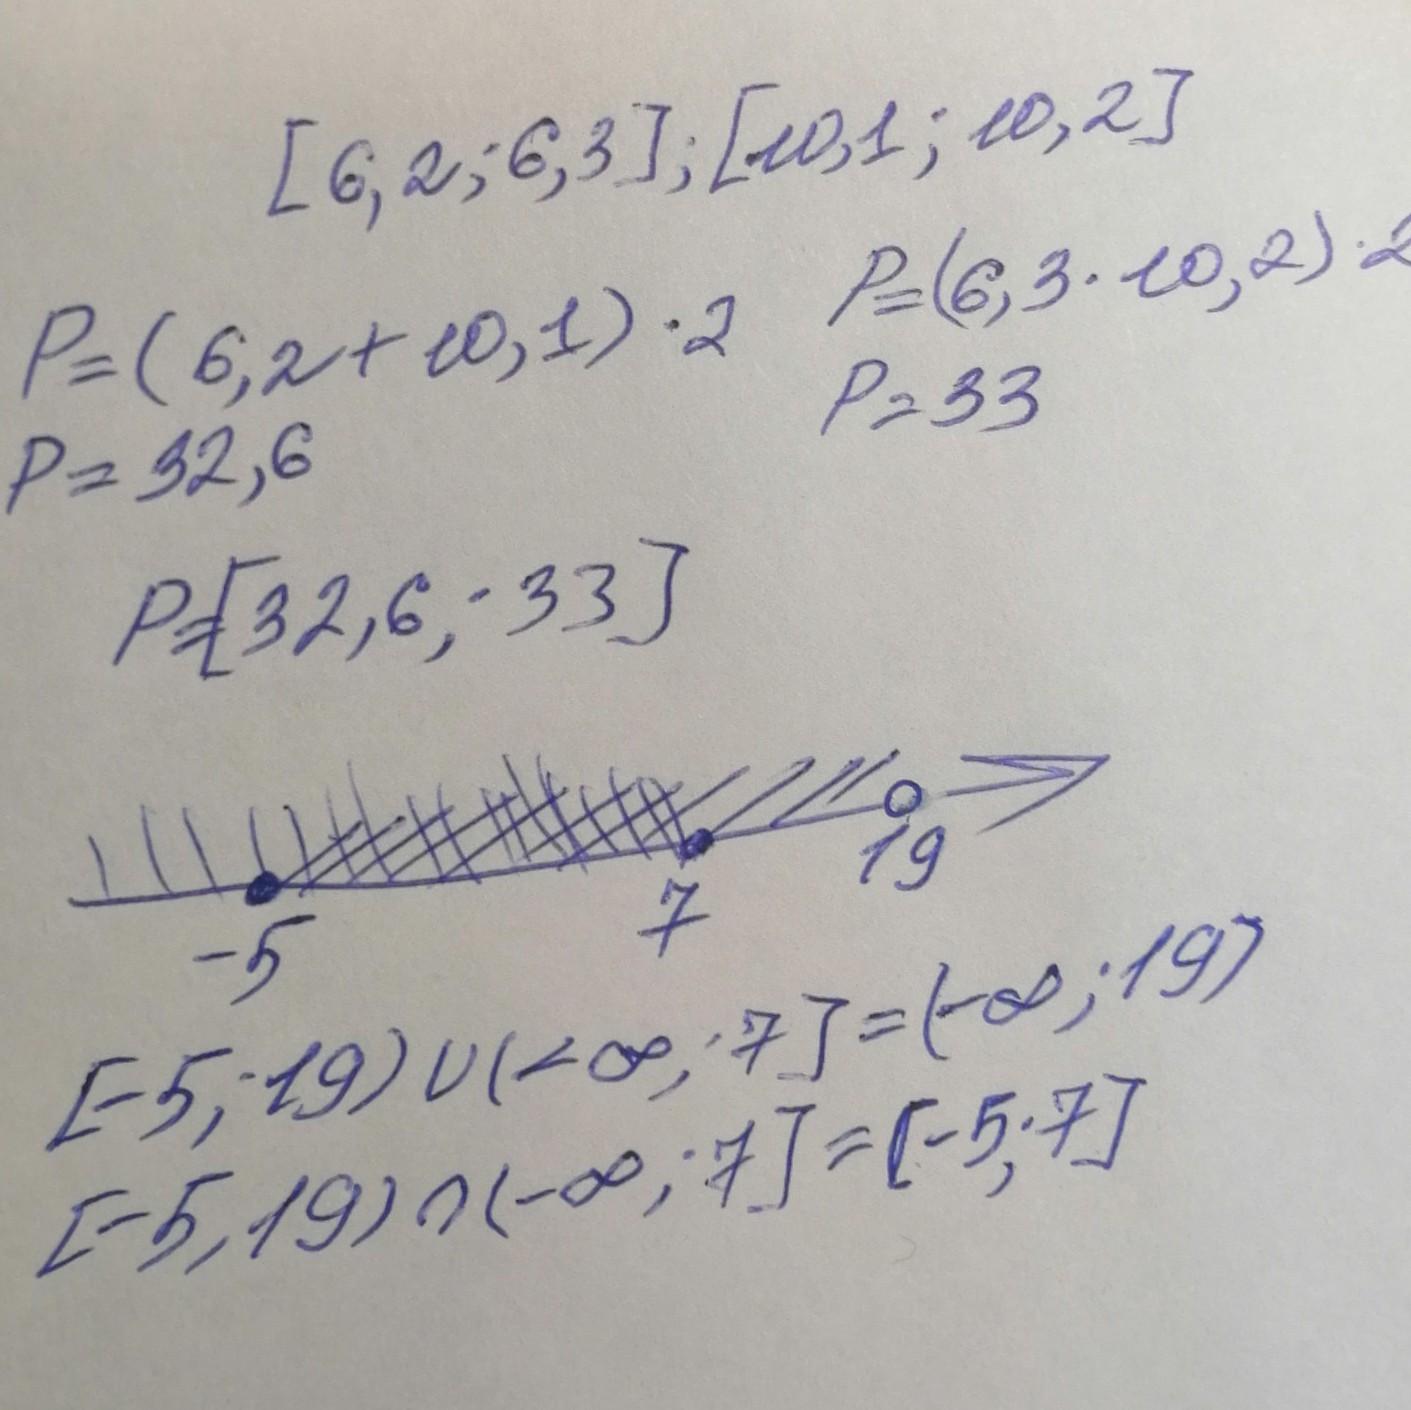 [6,2;6,3];[10,1;10,2]
P=(6,2+10,1)·2
P=32,6
P=(6,3·10,2)·2
P=33
P=[32,6;33]
-5 7 19
[-5;19)∪(-∞;7]=(-∞;19)
[-5,19)∩(-∞;7]=[-5;7]